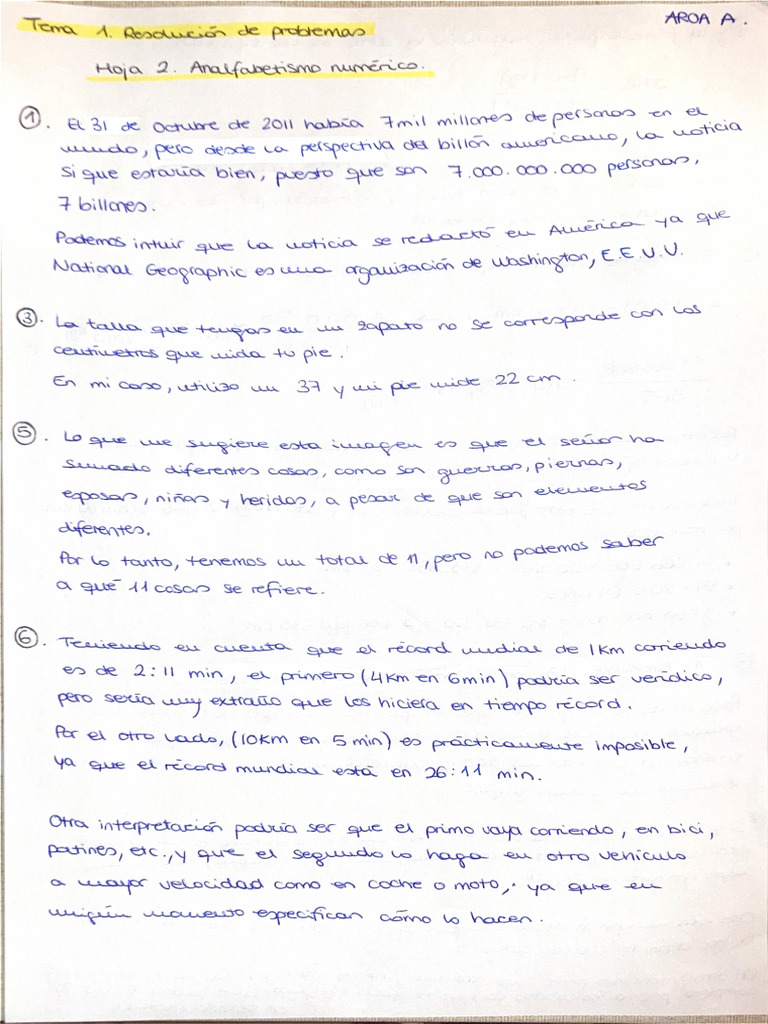 AROA A.
Tema 1. Resolución de problemas
Hoja 2. Analfabetismo numérico.
①. El 31 de Octubre de 2011 había 7mil millones de personas en el
mundo, pero desde la perspectiva del billón americano, la noticia
si que estaría bien, puesto que son 7.000.000.000 personas,
7 billones.
Podemos intuir que la noticia se redactó en América ya que
National Geographic es una organización de Washington, E.E.U.U.
③. La talla que tengas en un zapato no se corresponde con los
centímetros que mida tu pie.
En mi caso, utilizo un 37 y mi pie mide 22 cm.
⑤. Lo que me sugiere esta imagen es que el señor ha
sumado diferentes cosas, como son guerras, piernas,
esposas, niñas y heridas, a pesar de que son elementos
diferentes.
Por lo tanto, tenemos un total de 11, pero no podemos saber
a qué 11 cosas se refiere.
⑥. Teniendo en cuenta que el récord mundial de 1Km corriendo
es de 2:11 min, el primero (4Km en 6min) podría ser verídico,
pero sería muy extraño que los hiciera en tiempo récord.
Por el otro lado, (10Km en 5 min) es prácticamente imposible,
ya que el récord mundial está en 26:11 min.
Otra interpretación podría ser que el primo vaya corriendo, en bici,
patines, etc., y que el segundo lo haga en otro vehículo
a mayor velocidad como en coche o moto, ya que en
ningún momento especifican cómo lo hacen.